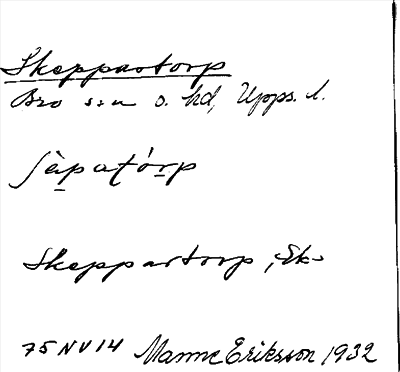 Skeppartorp
Bro sn o. hd, Upps. l.
ʃèpaʈórp
Skeppartorp, Ek-
75 NV 14 Manne Eriksson 1932